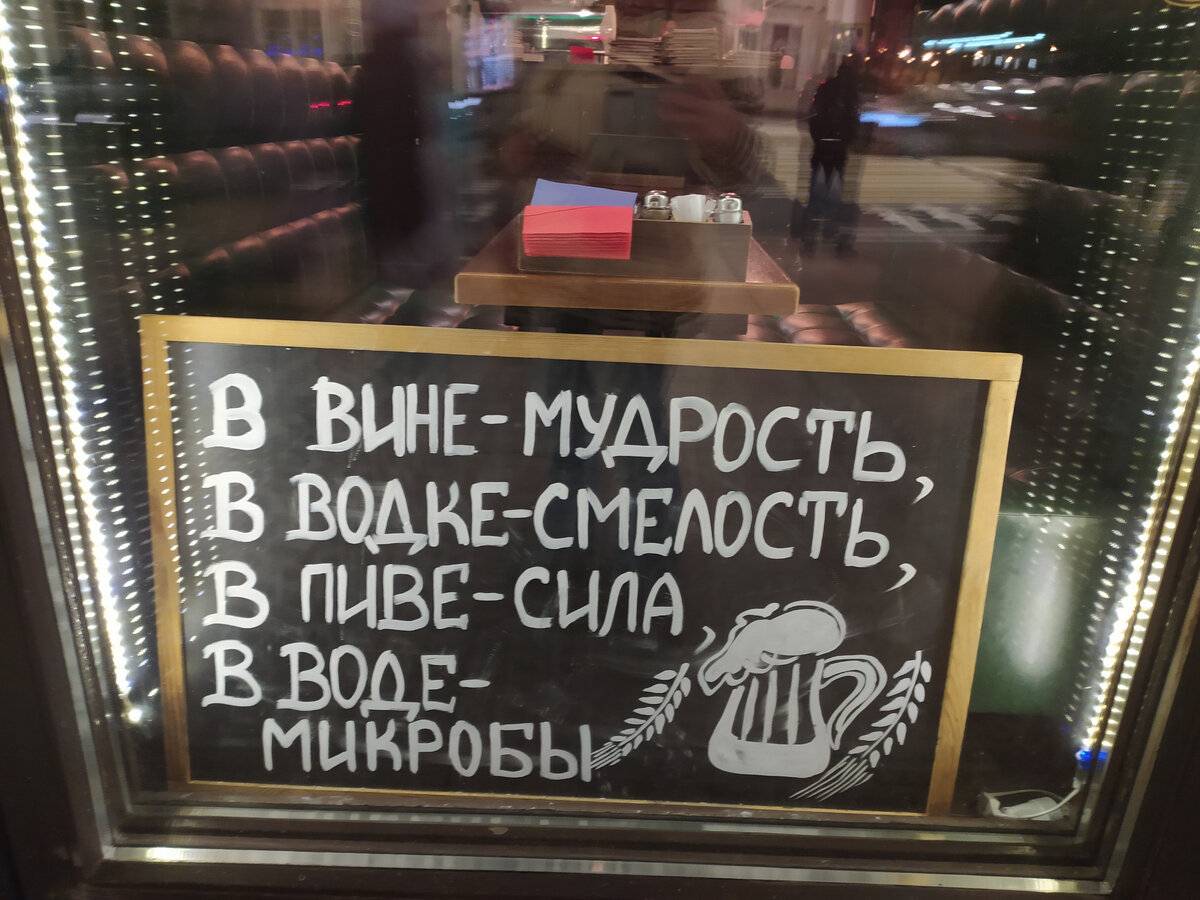 В ВИНЕ-МУДРОСТЬ,
В ВОДКЕ-СМЕЛОСТЬ,
В ПИВЕ-СИЛА,
В ВОДЕ-
МИКРОБЫ